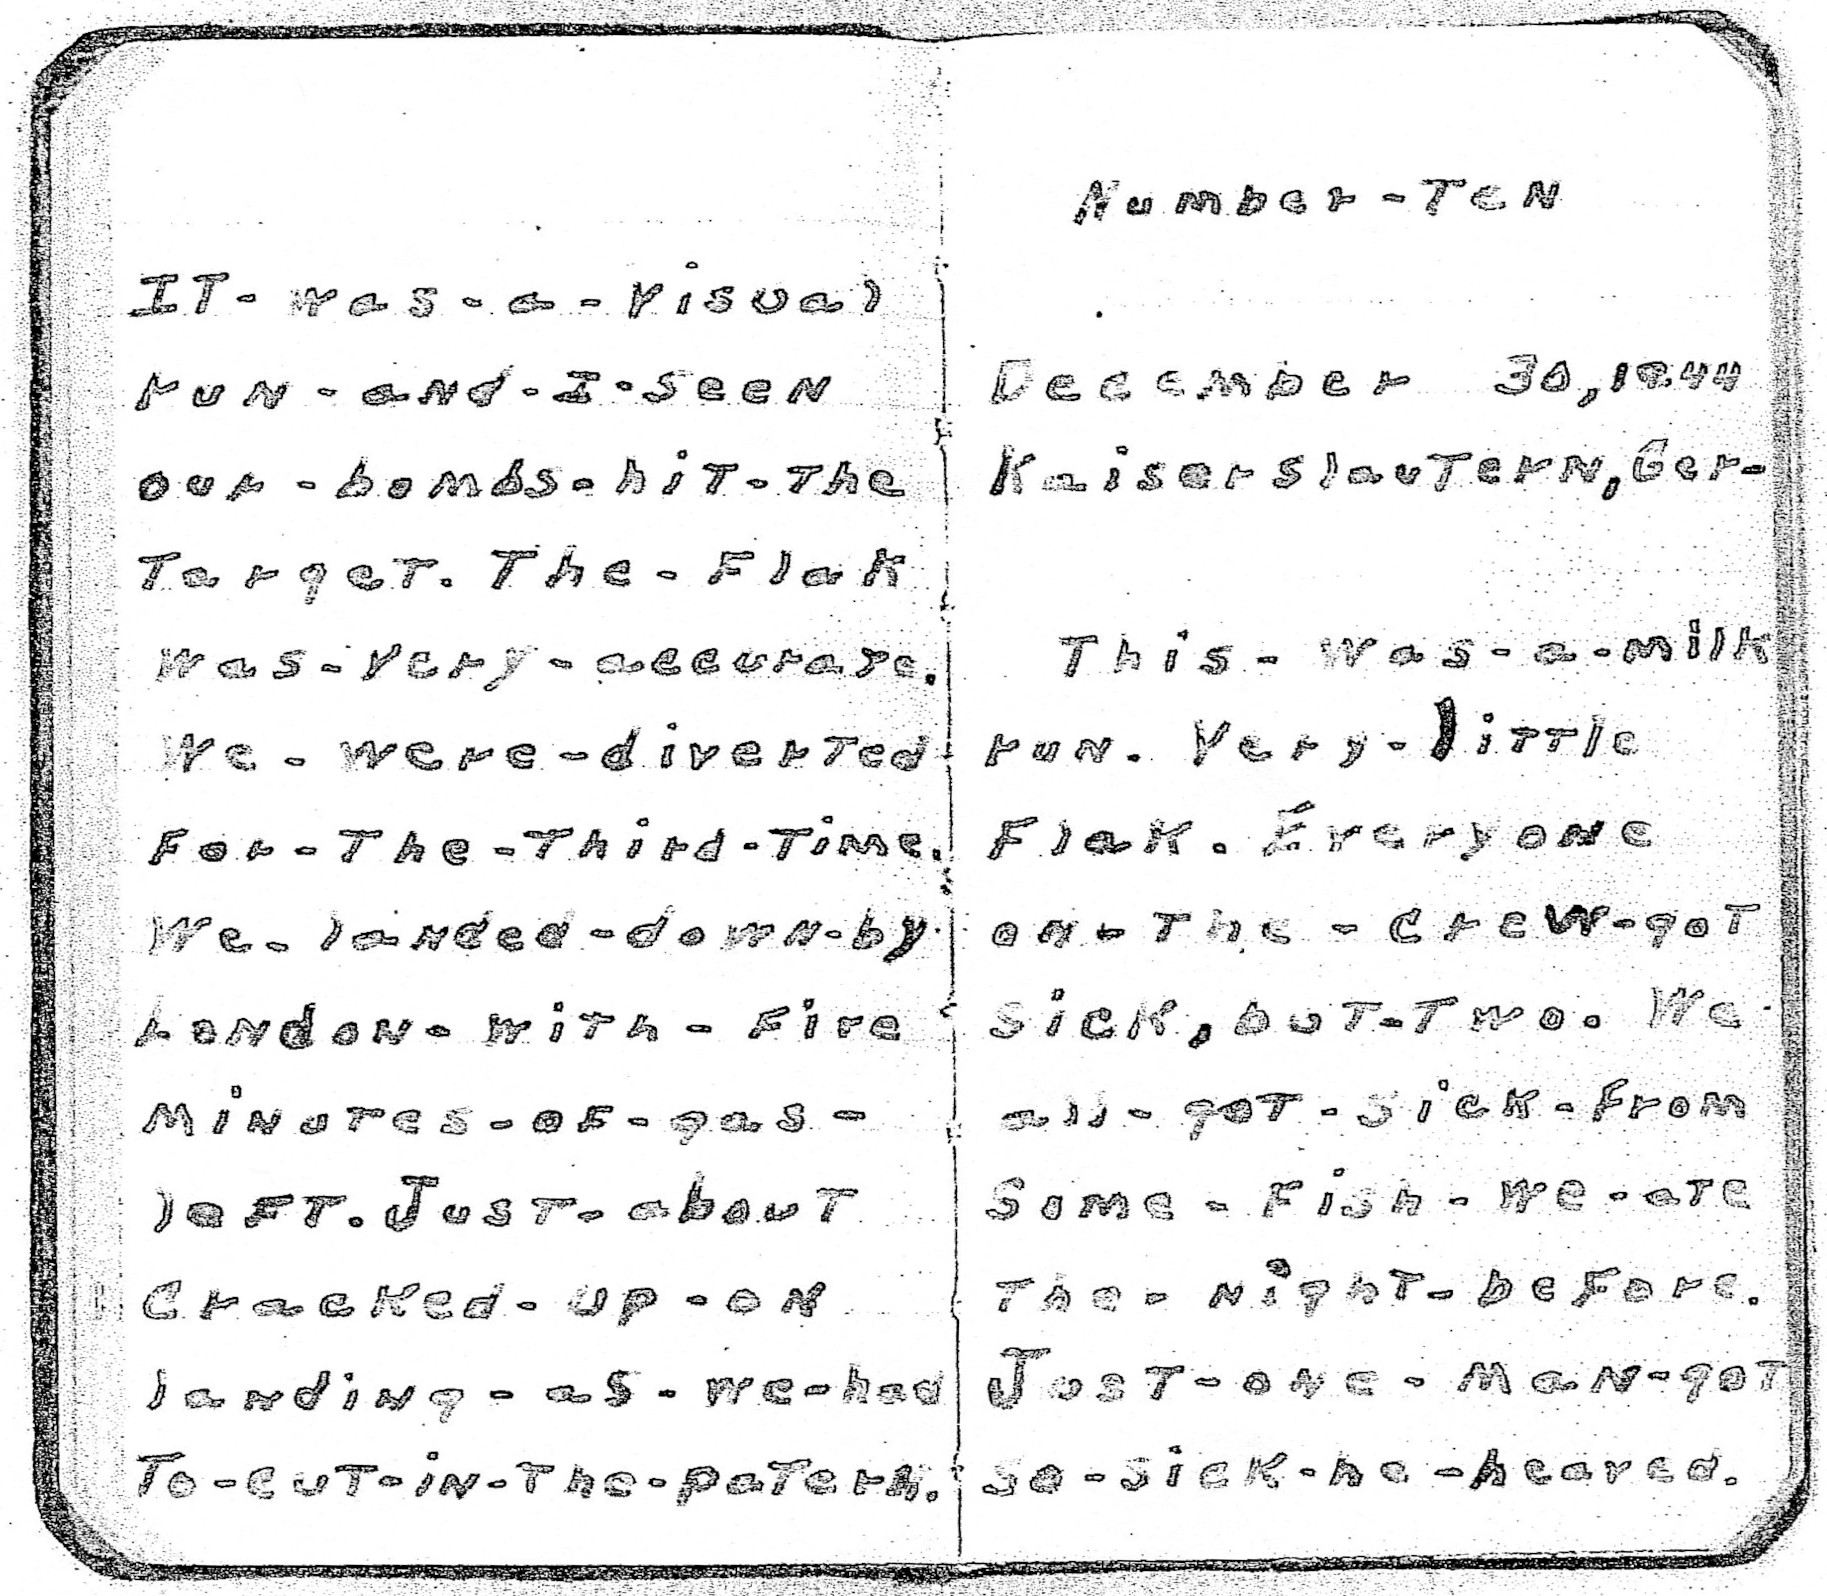 IT-was-a-visual
run-and-I-seen
our-bombs-hit-the
Target. The-Flak
was-very-accurate.
We-were-diverted
For-The-Third-Time.
We-landed-down-by
London-with-Five
Minutes-of-gas-
left. Just-about
Cracked-up-on
landing-as-we-had
To-cut-in-The-patern.
Number-Ten
December 30, 1944
Kaiserslautern, Ger-
This-was-a-milk
run. Very-little
Flak. Everyone
on-The-crew-got
sick, but-Two. We
all-got-sick-from
Some-Fish-we-ate
The-night-before.
Just-one-man-got
so-sick-he-heaved.